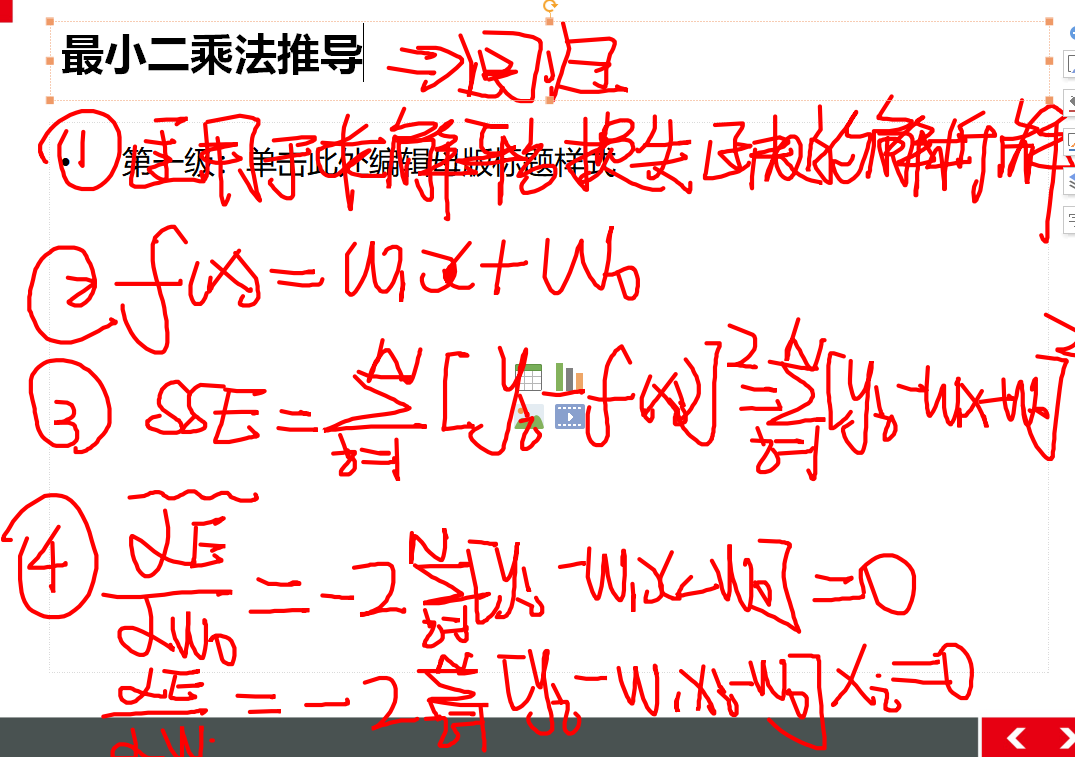 最小二乘法推导 → 回归
• 第一级：单击此处编辑母版标题样式
① 主要用于求解平方损失函数的解析解
② f(x) = w₁x + w₀
③ SSE = ∑ᵢ₌₁ᴺ [yᵢ - f(xᵢ)]² = ∑ᵢ₌₁ᴺ [yᵢ - w₁x - w₀]²
④ ∂E/∂w₀ = -2 ∑ᵢ₌₁ᴺ [yᵢ - w₁xᵢ - w₀] = 0
∂E/∂w₁ = -2 ∑ᵢ₌₁ᴺ [yᵢ - w₁xᵢ - w₀] xᵢ = 0